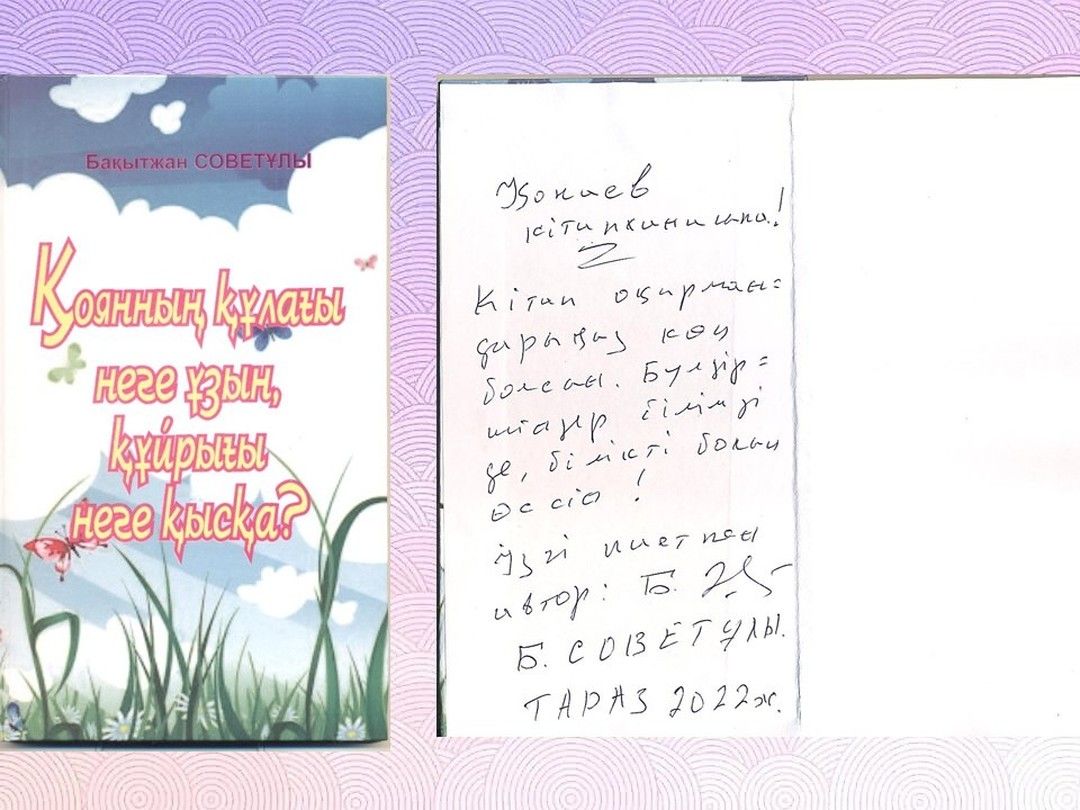 Бақытжан СОВЕТҰЛЫ
Қоянның құлағы
неге ұзын,
құйрығы
неге қысқа?
Қонаев
кітапханашна!
Кітап оқырман=
дарыңыз көп
болсын. Бүлдір=
шіндер білімді
де, білікті болып
өссін!
Ізгі ниетпен
автор: Б.
Б. СОВЕТҰЛЫ.
ТАРАЗ 2022ж.